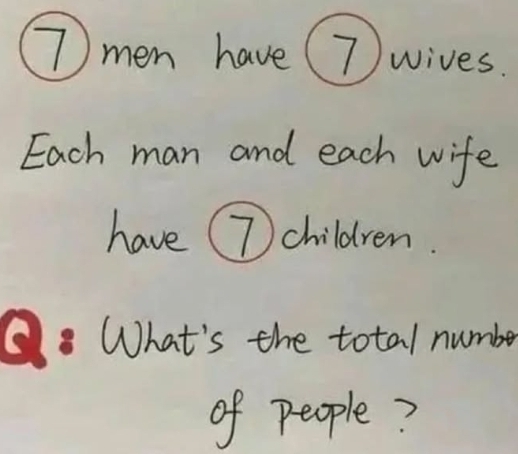 7 men have 7 wives.
Each man and each wife
have 7 children.
Q: What's the total numbe
of people?